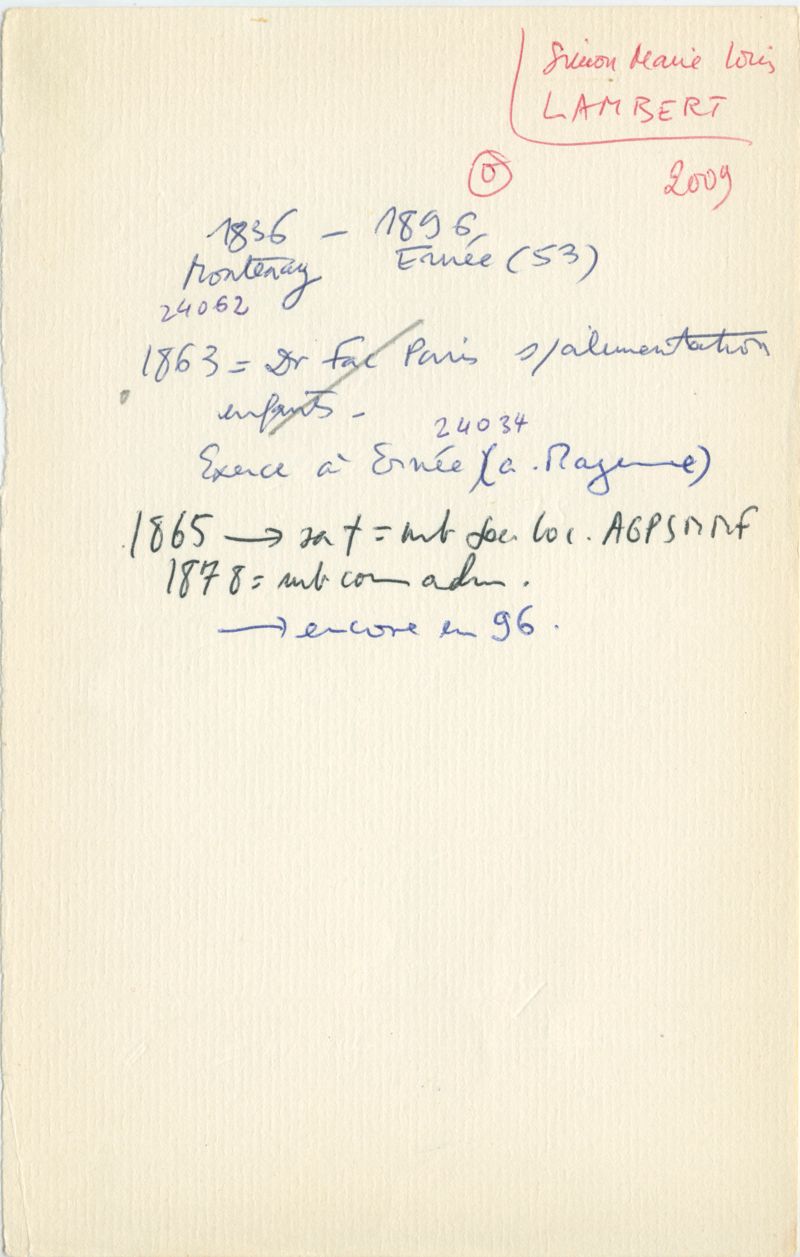 Simon Marie Louis
LAMBERT
O 2009
1836 – 1896
Montenay Ernée (53)
24062
1863 = Dr Fac Paris s/alimentation
enfants –
24034
Exerce à Ernée (a. Mayenne)
1865 → sa † = mb Soc. loc. AGPSMMF
1878 = mb com adm.
→ encore en 96.